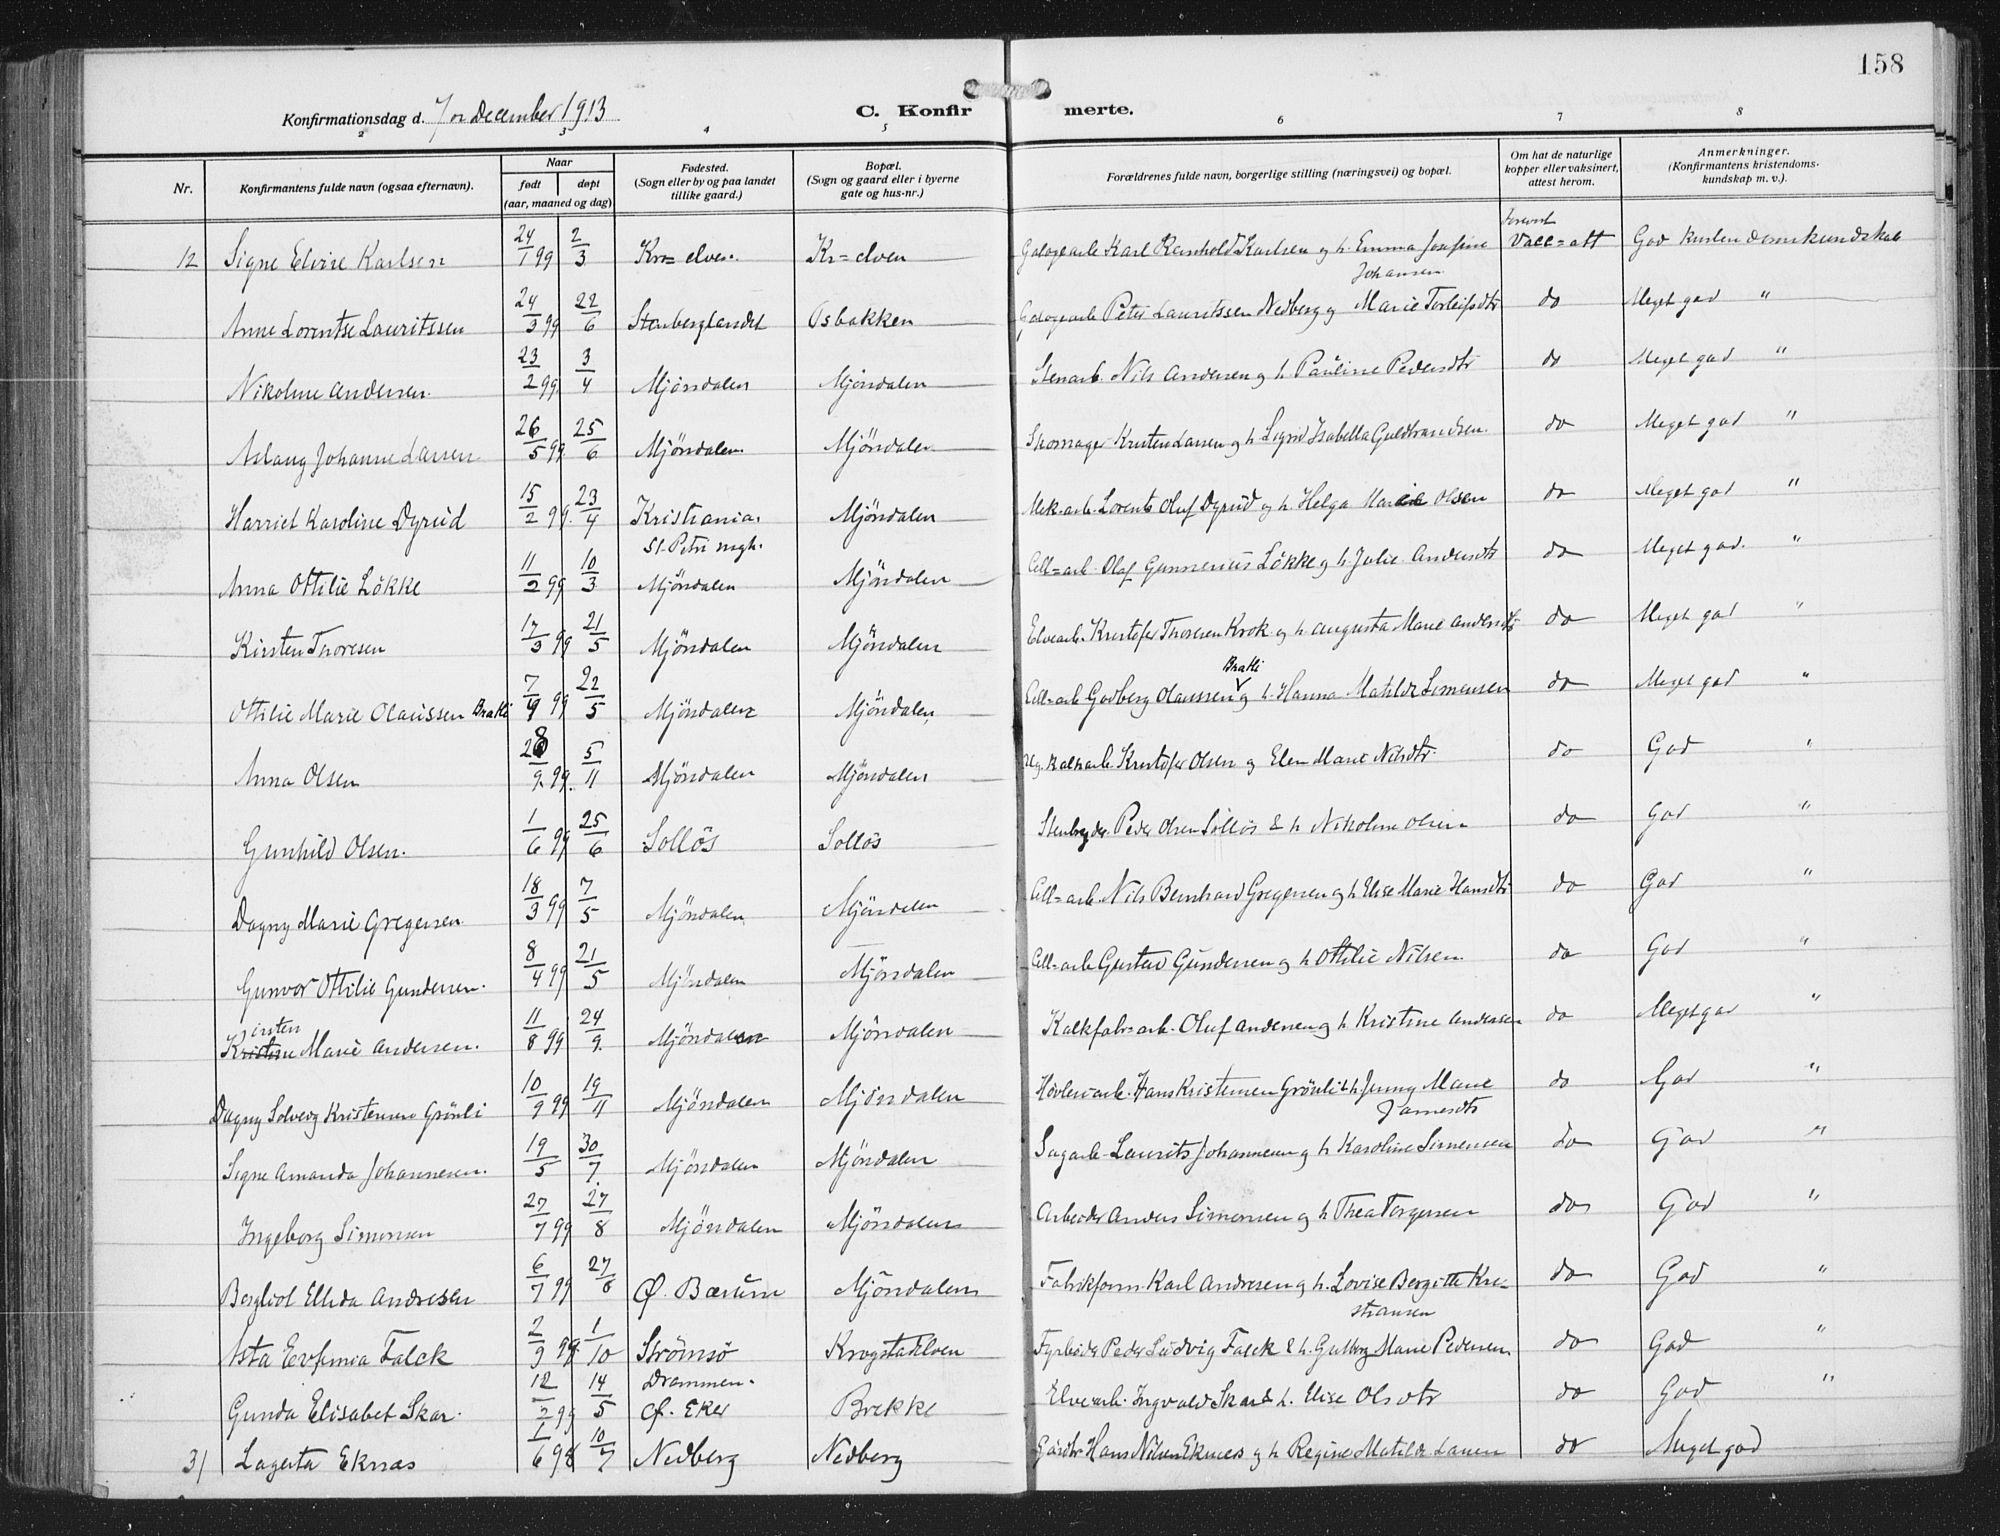 158
Konfirmationsdag d. 7 December 1913 C. Konfirmerte.
2 3 4 5 6 7 8
Nr. Konfirmantens fulde navn (ogsaa efternavn). Naar født døpt (aar, maaned og dag) Fødested. (Sogn eller by og paa landet tillike gaard.) Bopæl. (Sogn og gaard eller i byerne gate og hus-nr.) Forældrenes fulde navn, borgerlige stilling (næringsvei) og bopæl. Om hat de naturlige kopper eller vaksinert, attest herom. Anmerkninger. (Konfirmantens kristendomskundskap m. v.).
12 Signe Elvire Karlsen 24/1 99 2/3 Kr=elven Kr=elven Galogearb Karl Reinhold Karlsen og h. Emma Josefine Vacc=att God kristendomskundskab
Johansen
Anne Lorentse Lauritssen 24/3 99 22/6 Stenberglandet Osbakken Galogearb Peter Lauritssen Nedberg og Marie Torleifsdtr do Meget god "
Nikoline Andersen. 23/2 99 3/4 Mjöndalen Mjöndalen Stenarb. Nils Andersen og h. Pauline Pedersdtr do Meget god "
Aslaug Johanne Larsen 26/5 99 25/6 Mjöndalen Mjöndalen Skomager Kristen Larsen og h. Sigrid Isabella Guldbrandsen. do Meget god "
Harriet Karoline Dyrud 15/2 99 23/4 Kristiania. Mjöndalen Mek.arb. Lorents Oluf Dyrud og h. Helga Marie Olsen do Meget god "
St. Petri mgh.
Anna Ottilie Lökke 11/2 99 10/3 Mjöndalen Mjöndalen Cell=arb. Olaf Gunnerius Lökke og h. Julie Andersdtr do Meget god. "
Kirsten Thoresen 17/3 99 21/5 Mjöndalen Mjöndalen Elvearb. Kristofer Thoresen Krok og h Augusta Marie Andersdtr do Meget god "
Bratli
Ottilie Marie Olaussen Bratli 7/4 99 22/5 Mjöndalen Mjöndalen Cell=arb Godberg Olaussen og h. Hanna Matilde Simensen do Meget god "
Anna Olsen 28/9 99 5/11 Mjöndalen Mjöndalen kalkarb Kristofer Olsen og Elen Marie Nilsdtr. do God "
Gunhild Olsen. 1/6 99 25/6 Sollös Sollös Stenbryder Peder Olsen Sollös & h Nikoline Olsen do God "
Dagny Marie Gregersen 18/3 99 7/5 Mjöndalen Mjöndalen Cell=arb. Nils Bernhard Gregersen og h Elise Marie Hansdtr do God "
Gunvor Ottilie Gundersen. 8/4 99 21/5 Mjöndalen Mjöndalen Cell=arb Gustav Gundersen og h Ottilie Nilsen. do God "
irsten
Kristine Marie Andersen. 11/8 99 24/9 Mjöndalen Mjöndalen Kalkfabr=arb. Oluf Andersen og h Kristine Andersen do Meget god "
Dagny Solveig Kristensen Grönli 10/9 99 19/11 Mjöndalen Mjöndalen Høvleriarb. Hans Kristensen Grönli & h. Jenny Marie do God "
Jamesdtr
Signe Amanda Johannesen. 19/5 30/7 Mjöndalen Mjöndalen Sagarb. Laurits Johannesen og h Karoline Simensen do God "
Ingeborg Simonsen 27/7 99 27/8 Mjöndalen Mjöndalen Arbeider Anders Simonsen og h Thea Torgersen do God "
Bergliot Ellida Andresen 6/7 99 27/8 Ø. Bærum Mjöndalen Fabrikform. Karl Andresen og h. Lovise Bergitte Kri- do God "
stiansen
Asta Evfemia Falck 2/9 99 1/10 Strömsö Krogstadelven Fyrböder Peder Ludvig Falck & h. Gulborg Marie Pedersen do God "
Drammen.
Gunda Elisabet Skar. 12/2 99 14/5 Ø. Eker Brekke Elvearb. Ingvald Skar & h. Elise Olsdtr do God "
31 Lagerta Eknæs 1/6 98 10/7 Nedberg Nedberg Gårdbr Hans Nilsen Eknæs og h Regine Matilde Larsen do Meget god